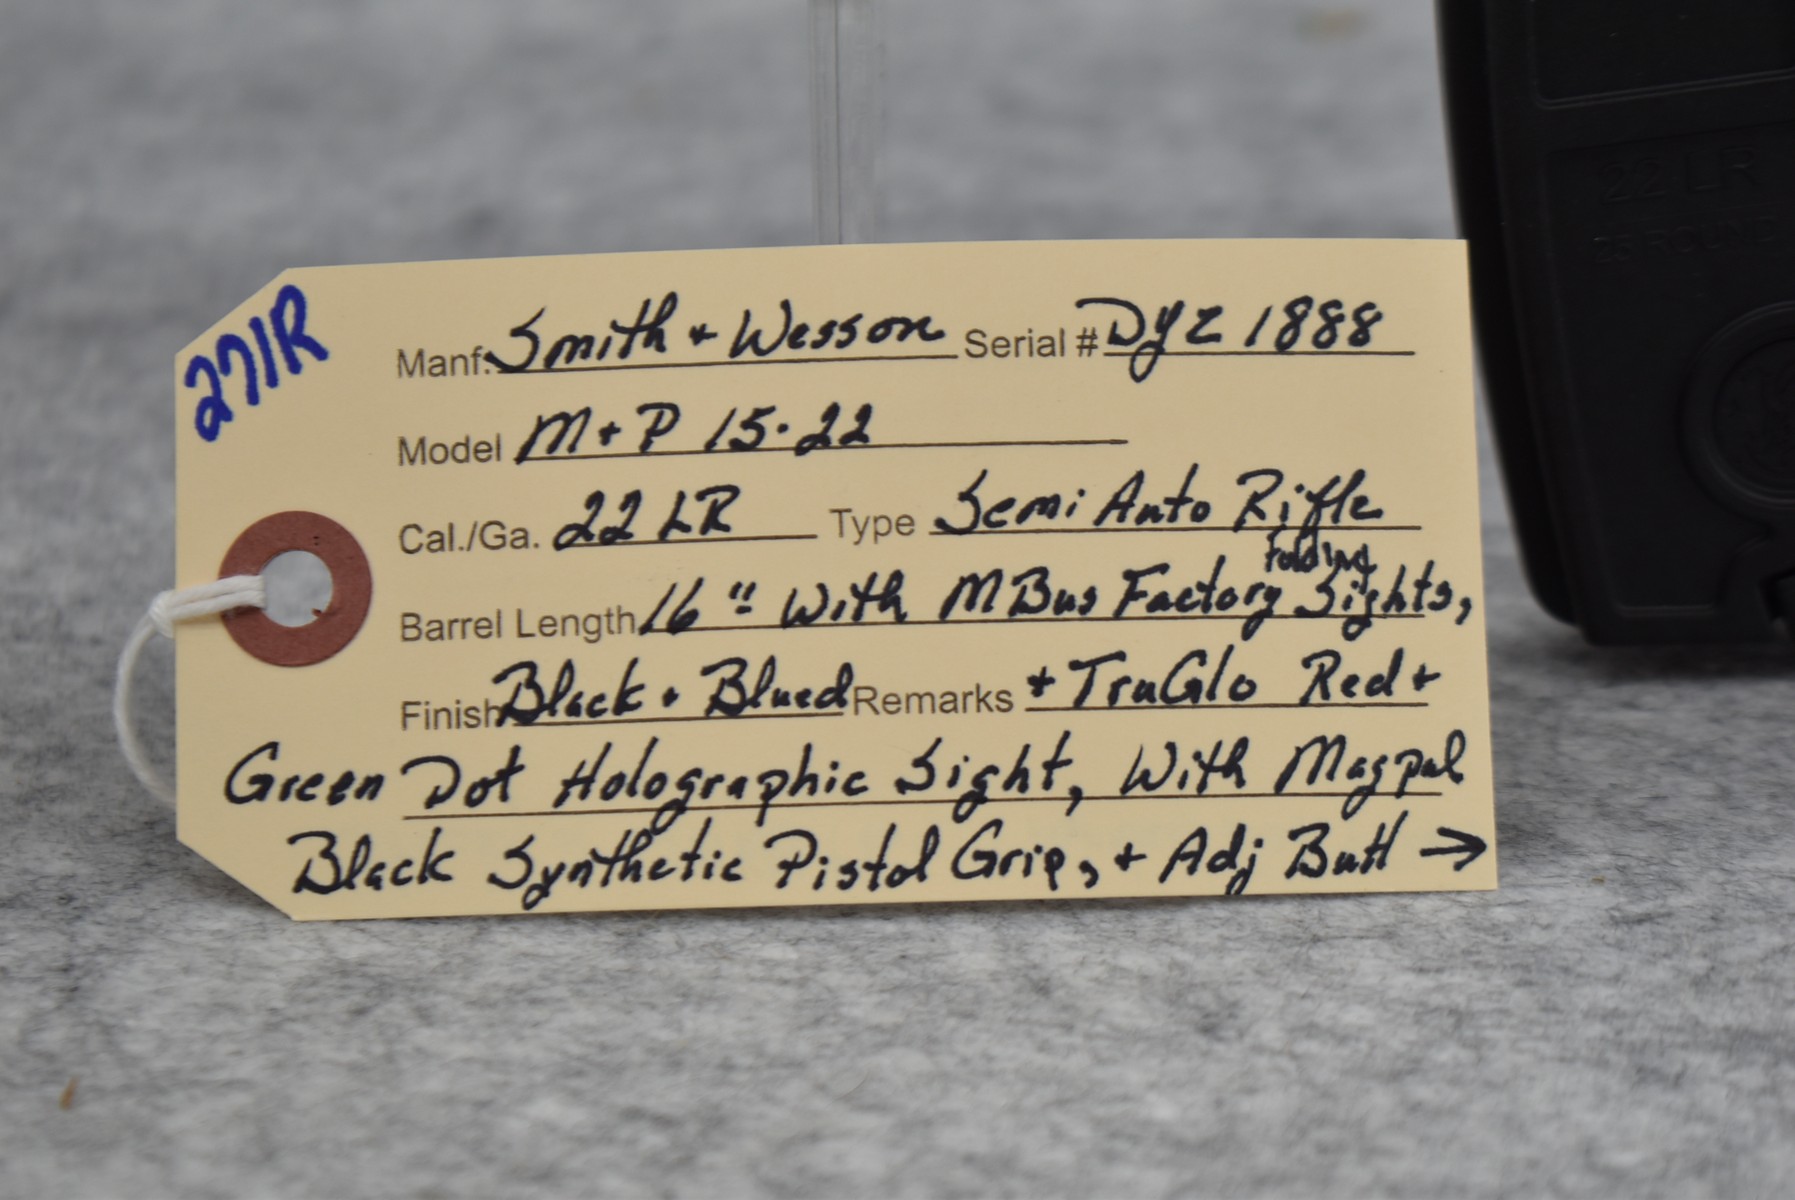 271R
Manf: Smith + Wesson Serial # DYZ 1888
Model M+P 15-22
Cal./Ga. 22 LR Type Semi Auto Rifle
Barrel Length 16" With MBus Factory Folding Sights,
Finish Black + Blued Remarks + TruGlo Red +
Green Dot Holographic Sight, With Magpul
Black Synthetic Pistol Grip, + Adj Butt →
22 LR
25 ROUND